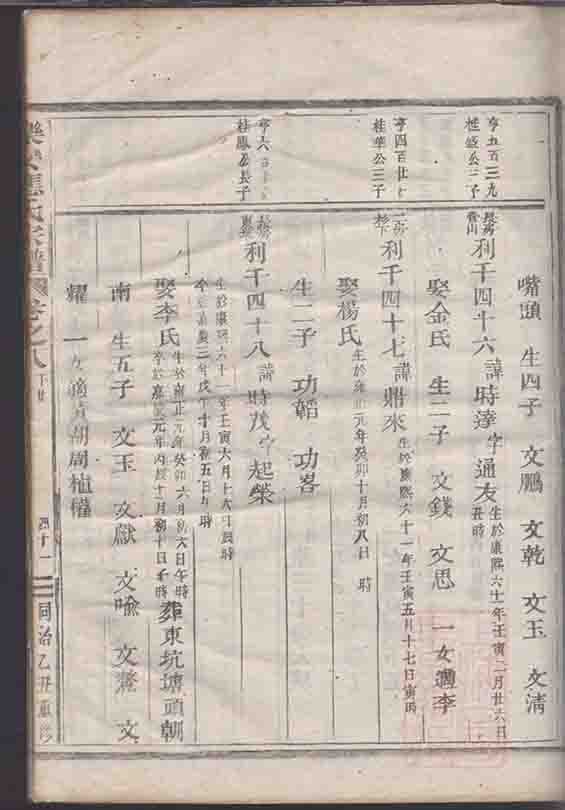 嘴頭 生四子 文鵬 文乾 文玉 文清
亨五百三九
公二子
利千四十六 諱時達 字通友 生於康熙六十一年壬寅二月廿六日
丑時
娶金氏 生二子 文錢 文思 一女適李
亨四百廿
桂華公三子
利千四十七 諱鼎來 生於康熙六十一年壬寅五月十七日寅時
娶楊氏 生於雍正元年癸卯十月初八日 時
生二子 功韜 功客
亨六百
桂鳳公長子
利千四十八 諱時茂 字起榮
生於康熙六十一年壬寅六月十六日辰時
卒於嘉慶三年戊午十月初五日午時
娶李氏 生於雍正元年癸卯六月初六日午時
卒於嘉慶元年丙辰十二月初十日 時 葬東坑塘頭朝
南 生五子 文玉 文獻 文喻 文 文
耀 一女適 朝周
氏宗譜 卷之八
四十一 同治乙丑重修